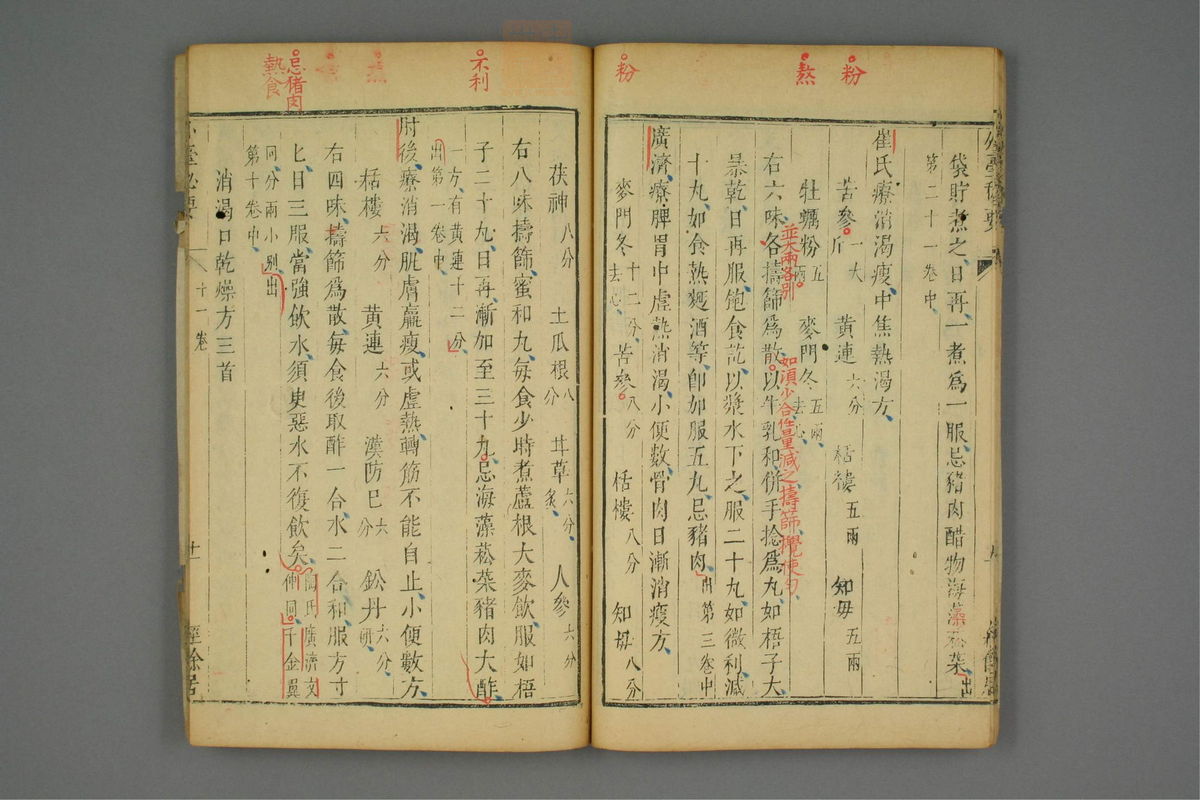 粉
熬
粉
袋貯煮之日再一煮爲一服忌豬肉醋物海藻菘菜出
第二十一卷中
崔氏療消渴瘦中焦熱渴方
苦參一大斤 黃連六分 栝樓五兩 知母五兩
牡蠣粉五兩 麥門冬五兩去心
並大兩各別
如須少合任量減之擣篩攪使勻
右六味各擣篩爲散以牛乳和併手捻爲丸如梧子大
暴乾日再服飽食訖以漿水下之服二十丸如微利減
十丸如食熱麪酒等卽加服五丸忌豬肉出第三卷中
廣濟療脾胃中虛熱消渴小便數骨肉日漸消瘦方
麥門冬十二分去心 苦參八分 栝樓八分 知母八分
不利
忌豬肉
熱食
茯神八分 土瓜根八分 甘草六分炙 人參六分
右八味擣篩蜜和丸每食少時煮蘆根大麥飲服如梧
子二十丸日再漸加至三十丸忌海藻菘菜豬肉大酢
一方有黃連十二分
出第一卷中
肘後療消渴肌膚羸瘦或虛熱轉筋不能自止小便數方
栝樓六分 黃連六分 漢防已六分 鈆丹六分研
右四味擣篩爲散每食後取酢一合水二合和服方寸
匕日三服當強飲水須臾惡水不復飲矣陶氏廣濟文
仲同千金翼
同分兩小別出
第十卷中
消渴口乾燥方三首
十一卷
十一
經餘居